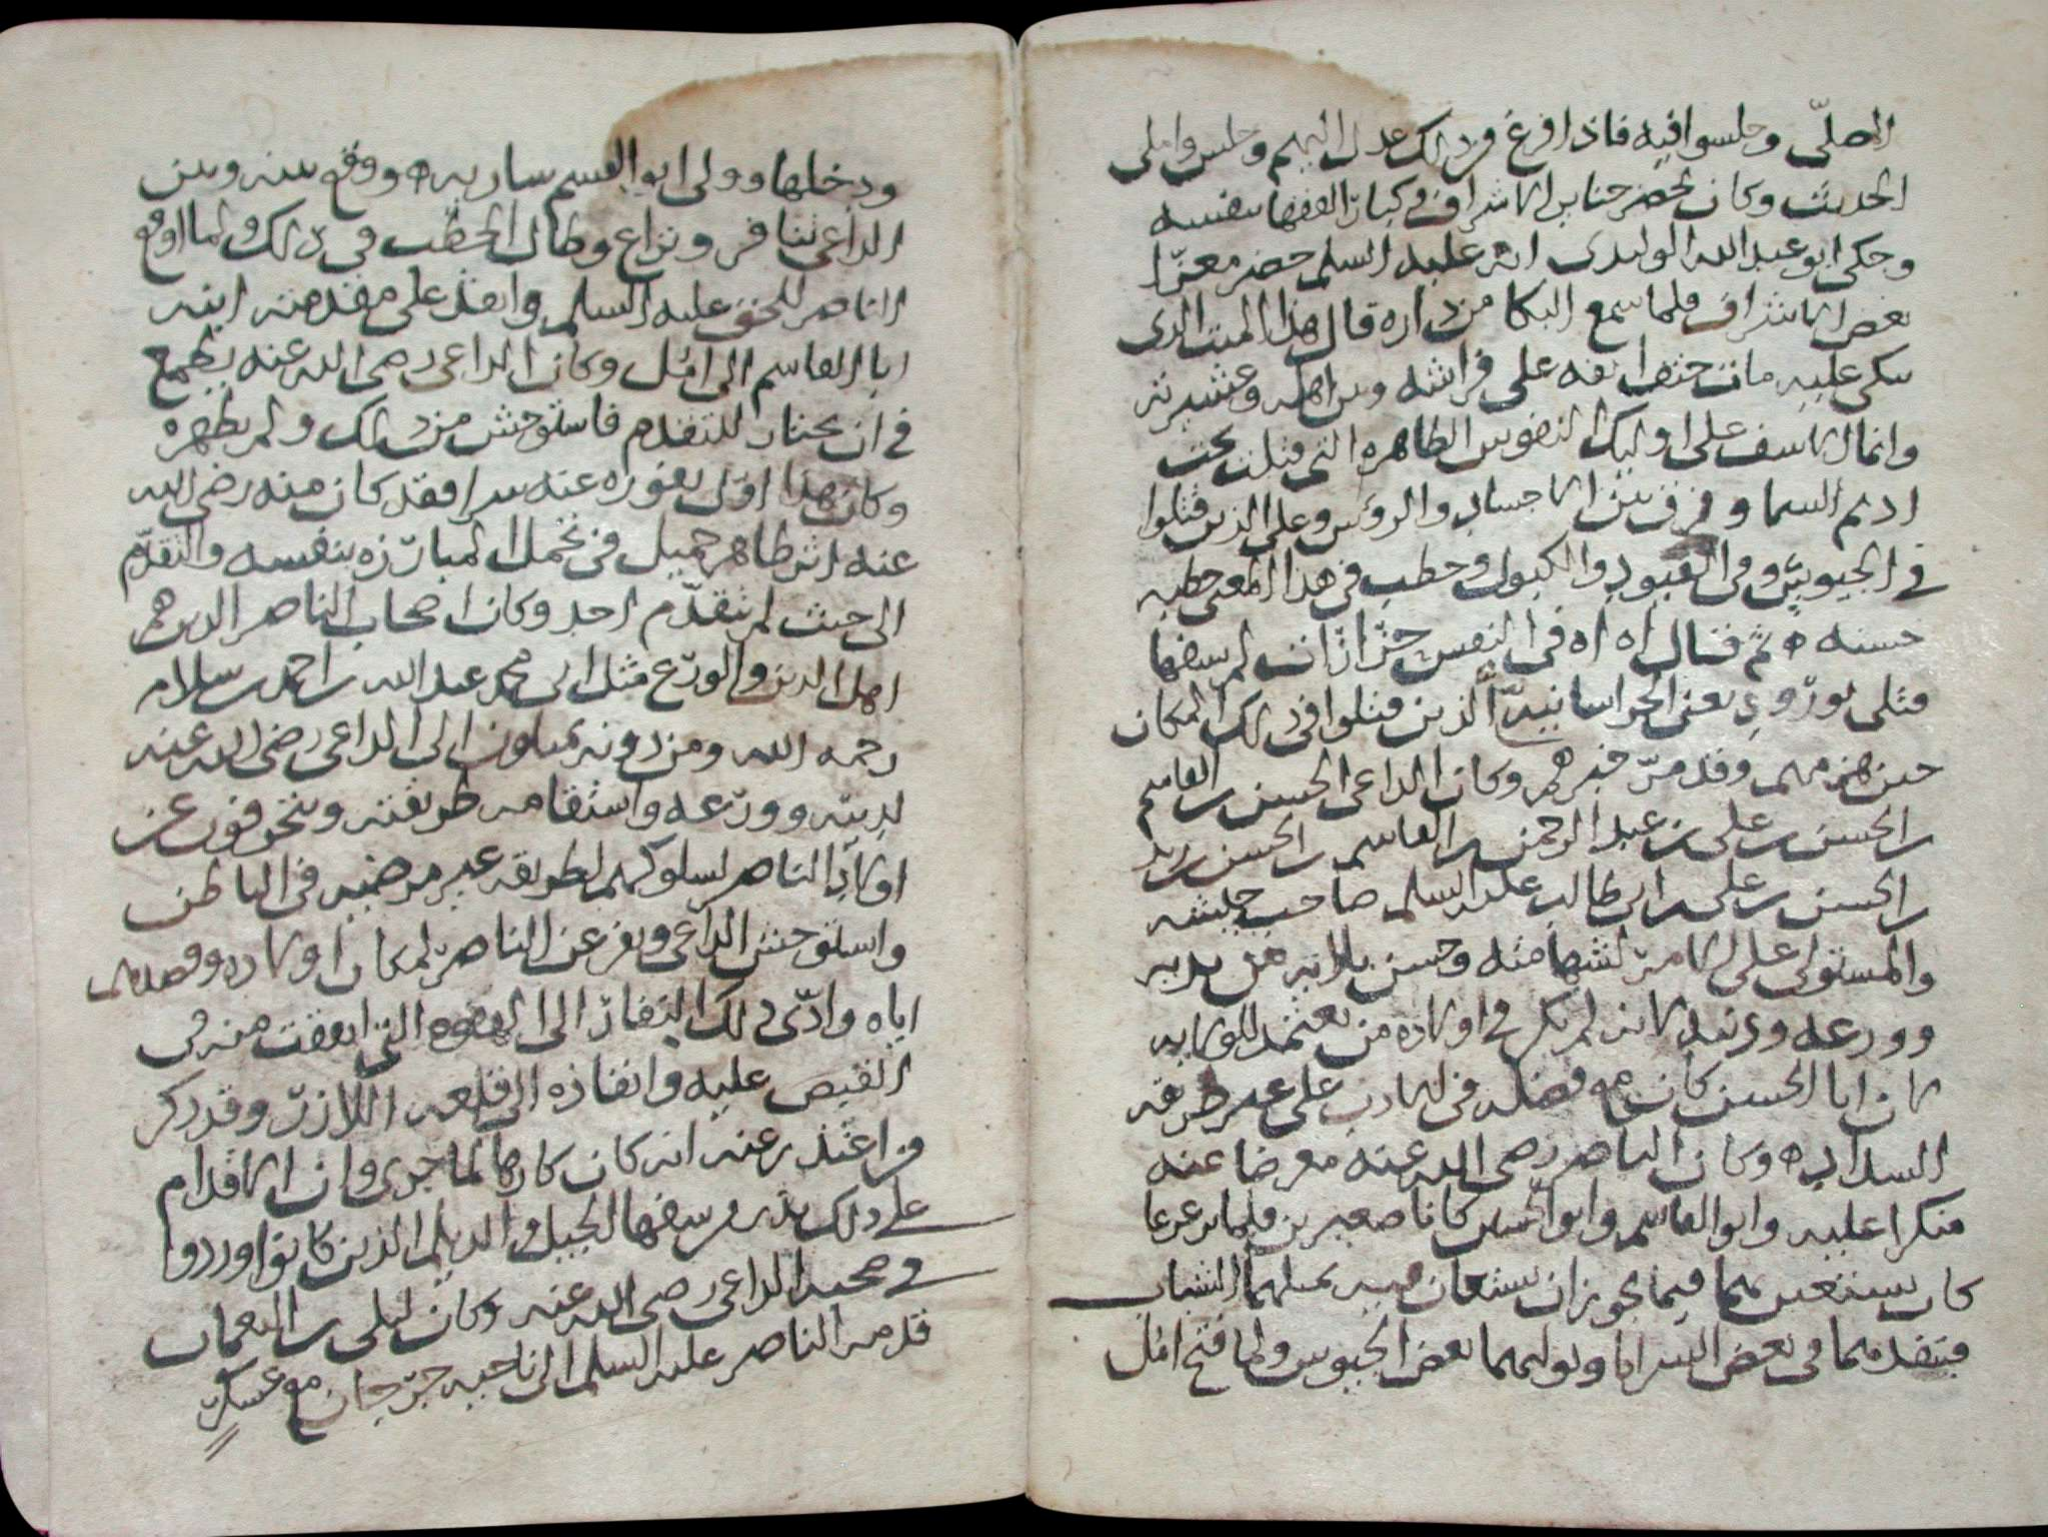 المصلّى وجلسوا فيه فاذا فرغ من ذلك عدل اليهم وجلس واملى
الحديث وكان يحضر جنايز الاشراف وكبار الفقها بنفسه
وحكى ابو عبد الله الوليدى انه عليه السلم حضر معزّا
بعض الاشراف فلما سمع البكا من داره قال هذا الميت الذى
يبكى عليه مات حتف انفه على فراشه وبين اهله وعشيرته
وانما الاسف على اوليك النفوس الطاهره التى قتلت تحت
اديم السما وفرق بين الاجساد والرؤس وعلى الذين قتلوا
فى الحبوس وفى القيود والكبول وخطب فى هذا المعنى خطبه
حسنه ثم قال اه اه فى النفس حزازات لم يشفها
قتلى بورّود يعنى الخراسانيه الذين قتلوا فى ذلك المكان
حين هزمهم وقد مرّ خبرهم وكان الداعى الحسن بن القاسم
بن الحسن بن على بن عبد الرحمن بن القاسم بن الحسن بن زيد
بن الحسن بن على بن ابى طالب عليه السلم صاحب جيشه
والمستولى على الامر لشهامته وحسن بلائه من تدبير
وورعه ودينه لانه لم يكن فى اولاده من يعتمد للولايه
لان ابا الحسن كان مع فضله فى الادب على غير طريقه
السداد وكان الناصر رضى الله عنه معرضا عنه
منكرا عليه وابو القاسم وابو الحسين كانا صغيرين فلما ترعرعا
كان يستعين بهما فيما يجوز ان يستعان فيه بمثلهما الشباب
فيقدمهما فى بعض السرايا ويوليهما بعض الجيوش ولما فتح امل
ودخلها وولى ابو القسم ساريه ووقع بينه وبين
الداعى تنافر ونزاع وطال الخطب فى ذلك ولما اوقع
الناصر للحق عليه السلم وانفذ على مقدمته ابنه
ابا القاسم الى امل وكان الداعى رضى الله عنه يطمع
فى ان يختار للتقدم فاستوحش من ذلك ولم يظهره
وكان هذا اوّل نفوره عنه سرا فقد كان منه رضى الله
عنه اثر ظاهر جميل فى تحمل المبارزه بنفسه والتقدّم
الى حيث لم يتقدّم احد وكان اصحاب الناصر الذين هم
اهل الدين والورع مثل ابى محمد عبد الله بن احمد بن سلام
رحمه الله ومن دونه يميلون الى الداعى رضى الله عنه
لدينه وورعه واستقامه طريقته وينحرفون عن
اولاد الناصر لسلوكهم لطريقه غير مرضيه فى الباطن
واستوحش الداعى ونفر عن الناصر لمكان اولاده وقصدهم
اياه وادّى ذلك النفار الى الهفوه التى اتفقت منه فى
القبض عليه وانفاذه الى قلعه اللازر وقد ذكر
من اعتذر عنه انه كان كارها لما جرى وان الاقدام
على ذلك بدر من سفها الجيل والديلم الذين كانوا وردوا
فى صحبه الداعى رضى الله عنه وكان ليلى بن النعمان
قدمه الناصر عليه السلم الى ناحيه جرجان مع عسكر